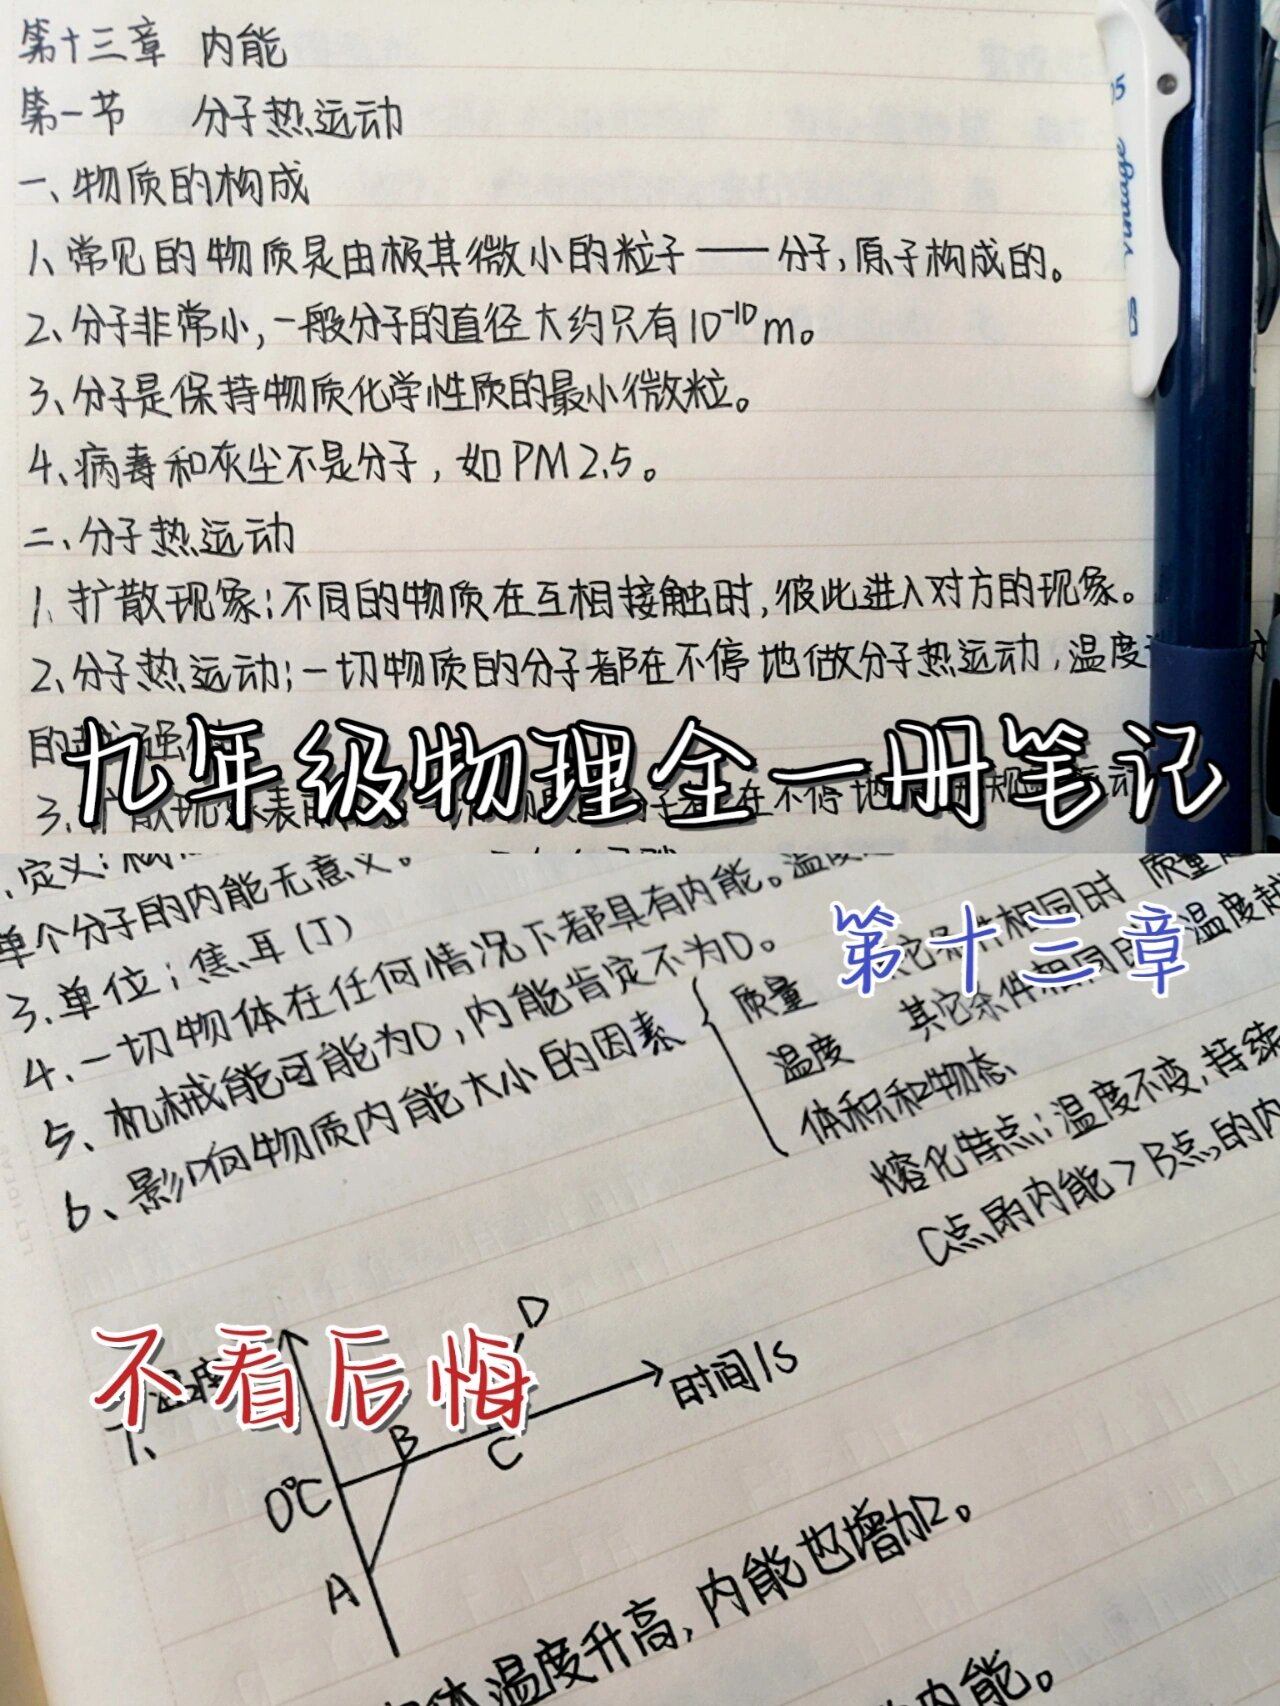 第十三章 内能
第一节 分子热运动
一、物质的构成
1、常见的物质是由极其微小的粒子——分子,原子构成的。
2、分子非常小,一般分子的直径大约只有10⁻¹⁰m。
3、分子是保持物质化学性质的最小微粒。
4、病毒和灰尘不是分子,如PM2.5。
二、分子热运动
1、扩散现象:不同的物质在互相接触时,彼此进入对方的现象。
2、分子热运动:一切物质的分子都在不停地做分子热运动,温度
的
九年级物理全一册笔记
3、扩散现象表 在不停地 运动
、定义:
单个分子的内能无意义。
3.单位:焦耳(J)
4.一切物体在任何情况下都具有内能。温度
5、机械能可能为0,内能肯定不为0。
6、影响物质内能大小的因素
质量 其它条件相同时 质量
第十三章
温度 其它条件相同时 温度越
体积和物态
熔化特点:温度不变,持续
C点的内能>B点的内
不看后悔
7、
温度
D
时间/s
B
C
0℃
A
体温度升高,内能也增加。
内能。
05
vintage